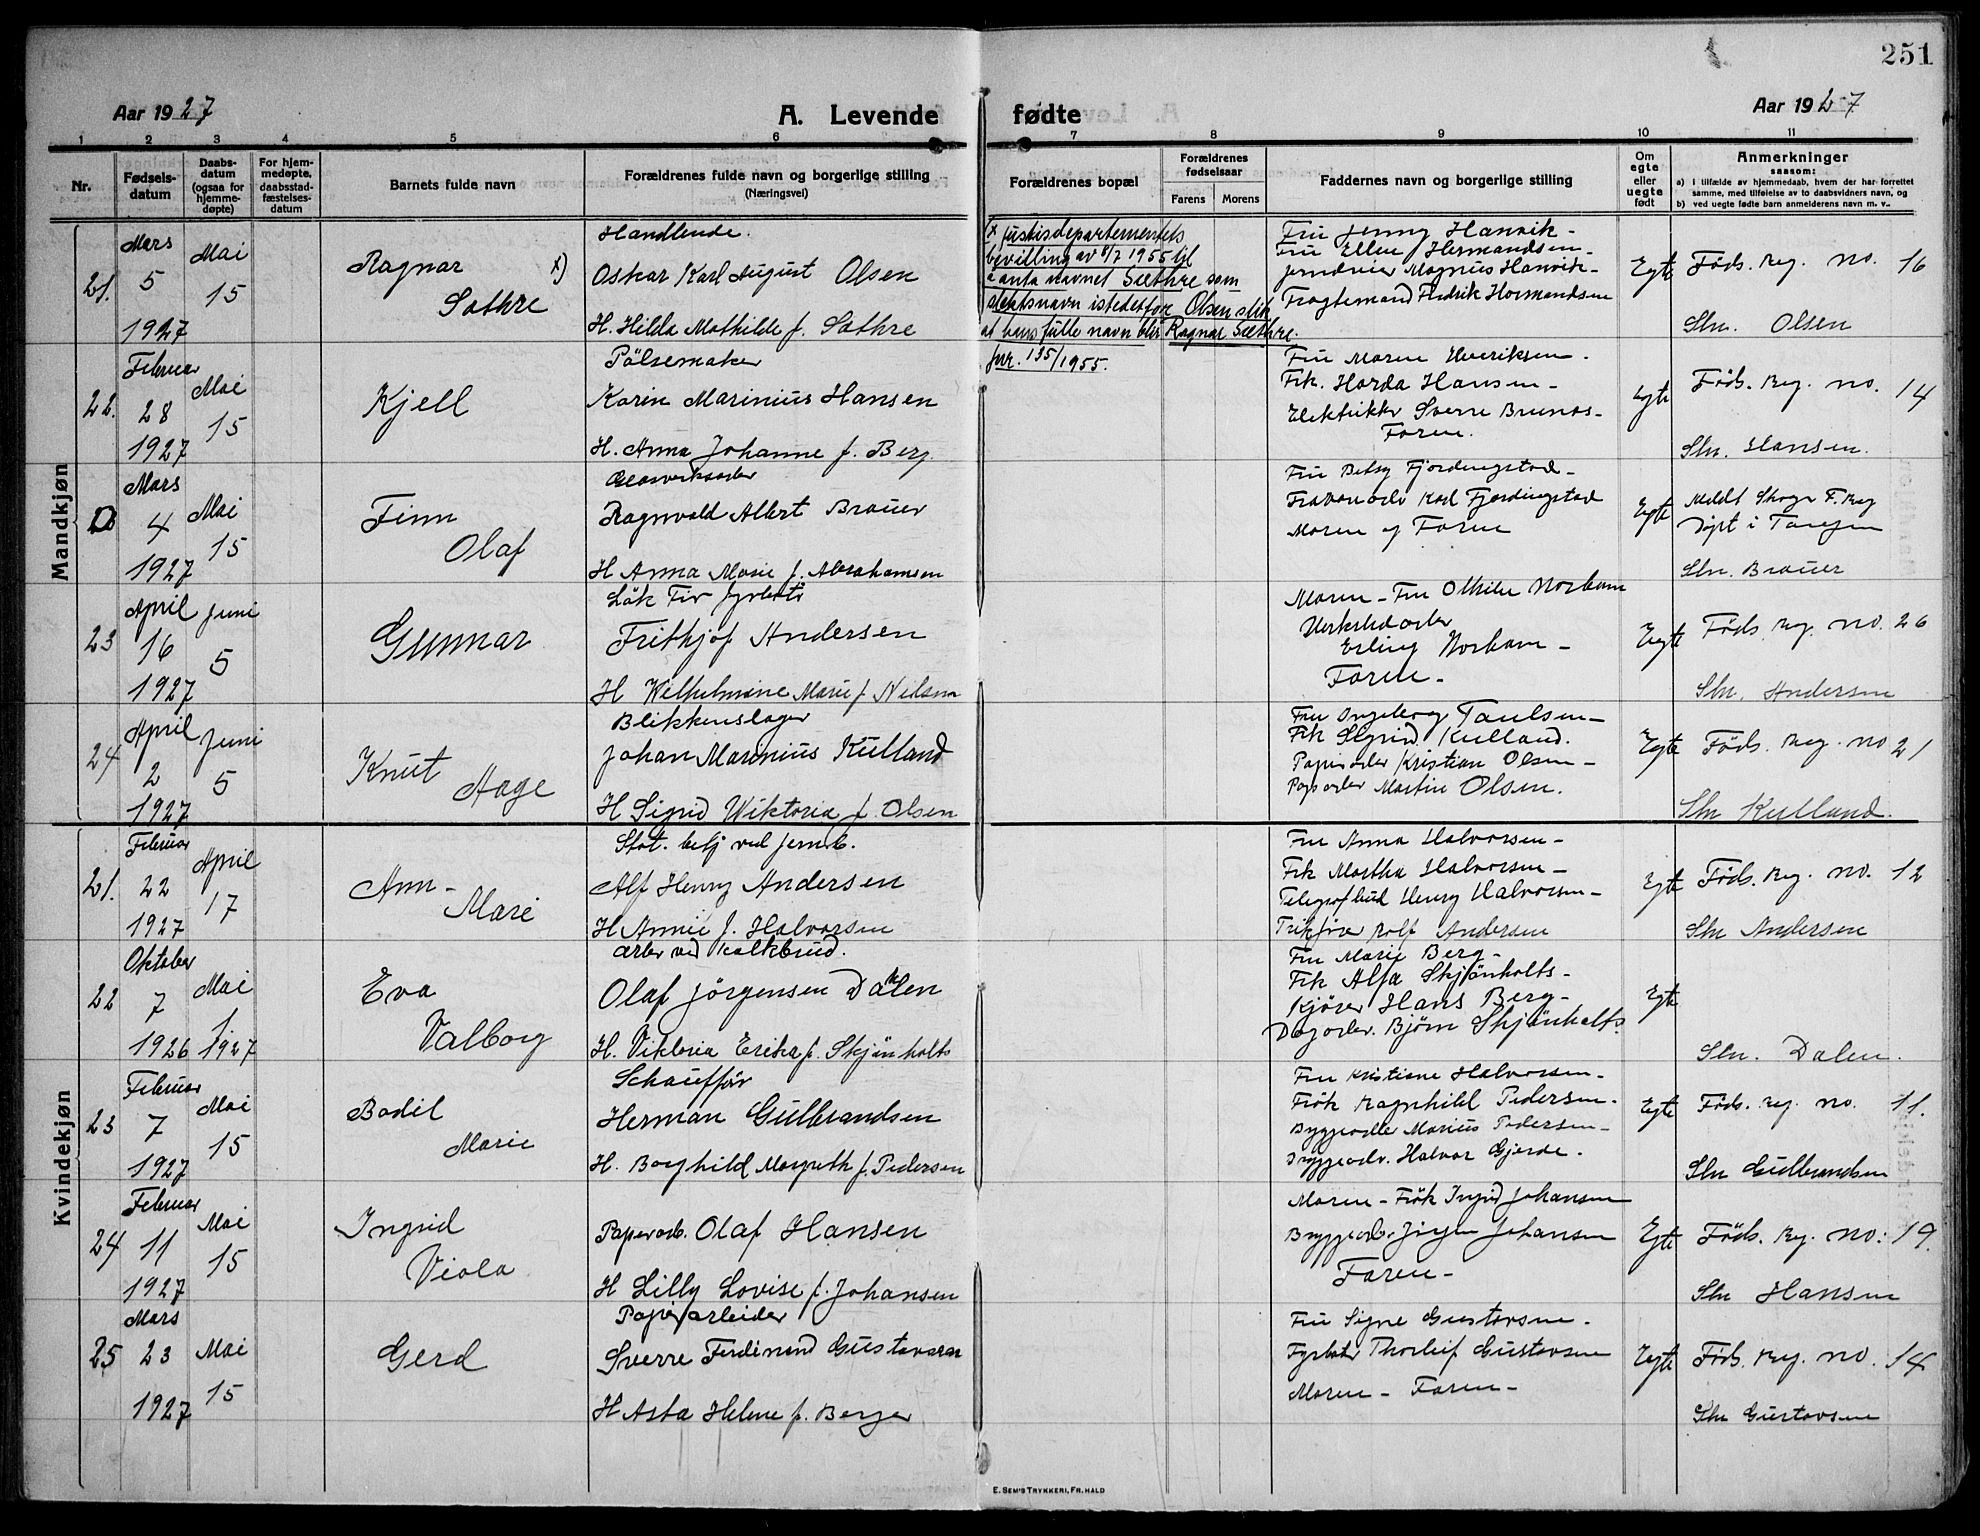 251
Aar 1927
A. Levende fødte
Aar 1927
1 2 3 4 5 6 7 8 9 10 11
Nr.
Fødsels-
datum
Daabs-
datum
(ogsaa for
hjemme-
døpte)
For hjem-
medøpte,
daabsstad-
fæstelses-
datum
Barnets fulde navn
Forældrenes fulde navn og borgerlige stilling
(Næringsvei)
Forældrenes bopæl
Forældrenes
fødselsaar
Farens
Morens
Faddernes navn og borgerlige stilling
Om
egte
eller
uegte
født
Anmerkninger
saasom:
a) I tilfælde av hjemmedaab, hvem der har forrettet
samme, med tilføielse av to daabsvidners navn, og
b) ved uegte fødte barn anmelderens navn m. v..
Mandkjøn
21.
Mars
5
1927
Mai
15
Ragnar x)
Sæthre
Handlende.
Oskar Karl August Olsen
H. Hilda Mathilde f. Sæthre
x Justisdepartementets
bevilling av 8/7 1955 til
å anta navnet Sæthre som
slektsnavn istedetfor Olsen slik
at hans fulle navn blir Ragnar Sæthre.
jnr. 135/1955.
Fru Jenny Hanvik-
Fru Ellen Hermandsen-
Jerndreier Magnus Hanvik-
Fragtemand Fredrik Hermandsen
Egte
Føds. Reg. no. 16
Sln. Olsen
22.
Februar
28
1927
Mai
15
Kjell
Pölsemaker
Karin Marinius Hansen
H. Anna Johanne f. Berg.
Fru Maren Henriksen.
Frk. Harda Hansen-
Elektrikker Sverre Brunås-
Faren.
Egte
Føds. Reg. no. 14
Sln. Hansen.
Mars
4
1927
Mai
15
Finn
Olaf
Ragnvald Albert Brauer
H Anna Marie f. Abrahamsen
Fru Betsy Fjordingstad-
Karl Fjordingstad
Moren og Faren
Egte
Meldt Skoger F. Reg
Døpt i Tangen
Sln. Brauer
23
April
16
1927
Juni
5
Gunnar
Frithjof Andersen
H Wilhelmine Marie f Nilsen
Moren - Fru Othilie Norham
Verkstedarb
Erling Norham-
Faren-
Egte
Føds. Reg. no. 26
Sln. Andersen
24
April
2
1927
Juni
5
Knut
Aage
Blikkenslager
Johan Marinius Kulland
H Sigrid Wiktoria f. Olsen
Fru Ingeborg Paulsen-
Frk Sigrid Kulland.
Papirarb Kristian Olsen-
Papirarb Martin Olsen.
Egte
Føds. Reg. no 21
Sln Kulland.
Kvindekjøn
21.
Februar
22
1927
April
17
Ann-
Mari
Stat. betj ved jernb.
Alf Henry Andersen
H Annie f. Halvorsen
Fru Anna Halvorsen-
Frk Martha Halvorsen-
Telegrafbud Henry Halvorsen-
Rolf Andersen
Egte
Føds. Reg. no. 12
Sln Andersen
22
Oktober
7
1926
Mai
1
1927
Eva
Valborg
Arber ved Kalkbrud.
Olaf Jörgensen Dalen
H. Viktoria Erika f. Skjönholts
Fru Marie Berg-
Frk Alfa Skjönholts-
Kjörer Hans Berg-
Dagarb. Bjørn Skjönholts.
Egte
Sln. Dalen.
23
Februar
7
1927
Mai
15
Bodil
Marie
Schauffør
Herman Gulbrandsen
H. Borghild Margreth f. Pedersen
Fru Kristiane Halvorsen-
Frök Ragnhild Pedersen-
Bryggearb Marius Pedersen-
Bryggearb. Halvor Gjerde.
Egte
Føds. reg. no. 11.
Sln Gulbrandsen
24
Februar
11
1927
Mai
15
Ingrid
Viola
Papirarb. Olaf Hansen
H Lilly Lovise f. Johansen
Moren - Frök Ingrid Johansen
Bryggearb. Jörgen Johansen
Faren-
Egte
Føds. Reg. no. 19.
Sln Hansen
25
Mars
23
1927
Mai
15
Gerd
Papirarbeider
Sverre Ferdinand Gustavsen
H Asta Helene f. Berger
Fru Signe Gustavsen.
Fyrbøter Thorleif Gustavsen
Moren - Faren-
Egte
Føds. Reg. no. 14
Sln Gustavsen
E. SEM'S TRYKKERI, FR.HALD